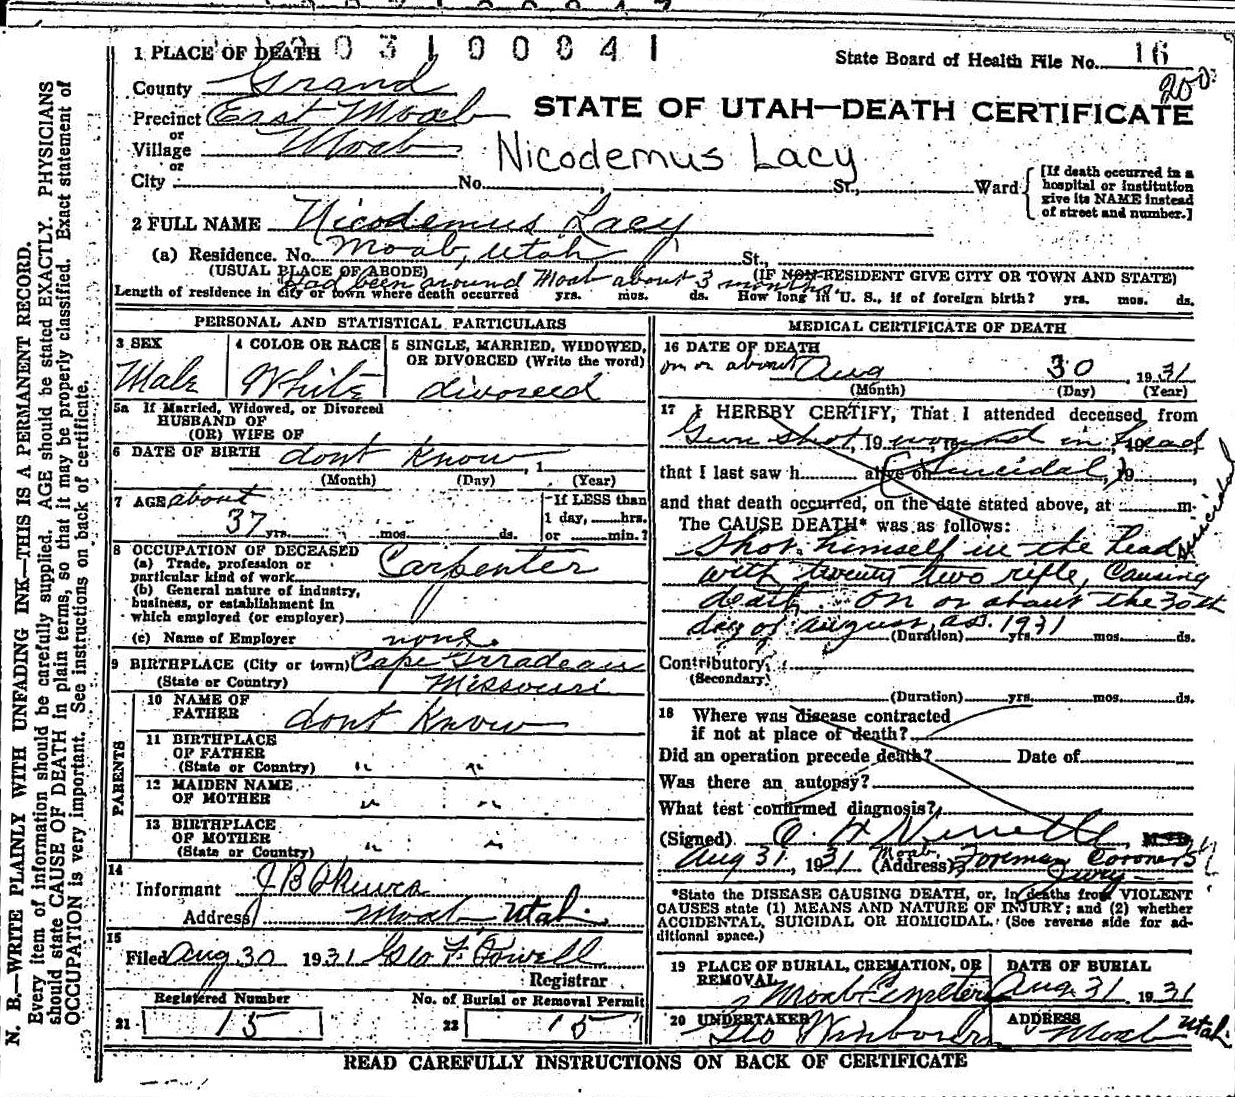 1 PLACE OF DEATH 03100041
State Board of Health File No. 16
200
County Grand
Precinct East Moab
STATE OF UTAH—DEATH CERTIFICATE
or
Village Moab
Nicodemus Lacy
or
City No. St., Ward
[If death occurred in a hospital or institution give its NAME instead of street and number.]
2 FULL NAME Nicodemus Lacy
(a) Residence. No. Moab, Utah St.,
(USUAL PLACE OF ABODE) (IF NON-RESIDENT GIVE CITY OR TOWN AND STATE)
Had been around Moab about 3 months.
Length of residence in city or town where death occurred yrs. mos. ds. How long in U. S., if of foreign birth? yrs. mos. ds.
PERSONAL AND STATISTICAL PARTICULARS
3 SEX
Male
4 COLOR OR RACE
White
5 SINGLE, MARRIED, WIDOWED, OR DIVORCED (Write the word)
divorced
5a If Married, Widowed, or Divorced
HUSBAND OF
(OR) WIFE OF
6 DATE OF BIRTH dont Know, 1
(Month) (Day) (Year)
7 AGE about
37 yrs. mos. ds.
If LESS than
1 day, hrs.
or min.?
8 OCCUPATION OF DECEASED
(a) Trade, profession or
particular kind of work Carpenter
(b) General nature of industry,
business, or establishment in
which employed (or employer)
(c) Name of Employer none
9 BIRTHPLACE (City or town) Cape Girradeau
(State or Country) Missouri
PARENTS
10 NAME OF
FATHER dont Know
11 BIRTHPLACE
OF FATHER
(State or Country) " "
12 MAIDEN NAME
OF MOTHER " "
13 BIRTHPLACE
OF MOTHER
(State or Country) " "
14
Informant J B
Address Moab Utah.
15
Filed Aug 30 1931 Geo F. Powell
Registrar
Registered Number
21 15
No. of Burial or Removal Permit
22 15
MEDICAL CERTIFICATE OF DEATH
16 DATE OF DEATH
on or about Aug 30, 1931
(Month) (Day) (Year)
17 I HEREBY CERTIFY, That I attended deceased from
Gun shot, 19 wound in head
that I last saw h alive on (Suicidal), 19
and that death occurred, on the date stated above, at m.
The CAUSE DEATH* was as follows:
Shot himself in the head
suicidal
with twenty two rifle, Causing
death. on or about the 30th
day of august, a.d. 1931
(Duration) yrs. mos. ds.
Contributory
(Secondary)
(Duration) yrs. mos. ds.
18 Where was disease contracted
if not at place of death?
Did an operation precede death? Date of
Was there an autopsy?
What test confirmed diagnosis?
(Signed) M. D.
Aug 31, 1931 (Address) Moab Foreman Coroners
Jury
*State the DISEASE CAUSING DEATH, or, in deaths from VIOLENT
CAUSES state (1) MEANS AND NATURE OF INJURY; and (2) whether
ACCIDENTAL, SUICIDAL OR HOMICIDAL. (See reverse side for ad-
ditional space.)
19 PLACE OF BURIAL, CREMATION, OR
REMOVAL
Moab Cemetery
DATE OF BURIAL
Aug. 31, 1931
20 UNDERTAKER
Geo
ADDRESS
Moab Utah.
READ CAREFULLY INSTRUCTIONS ON BACK OF CERTIFICATE
N. B.—WRITE PLAINLY WITH UNFADING INK—THIS IS A PERMANENT RECORD.
Every item of information should be carefully supplied. AGE should be stated EXACTLY. PHYSICIANS
should state CAUSE OF DEATH in plain terms, so that it may be properly classified. Exact statement of
OCCUPATION is very important. See instructions on back of certificate.